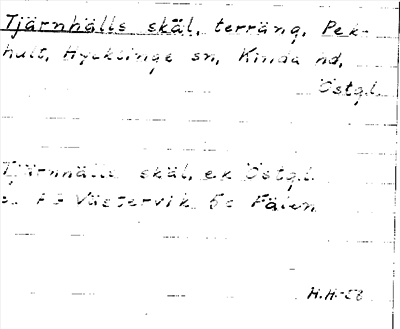 Tjärnhälls skäl, terräng, Pek-
hult, Hycklinge sn, Kinda hd,
Östg.l.
Tjärnhälls skäl, ek Östg.l.
Västervik 5c Fälen
H.H.-58